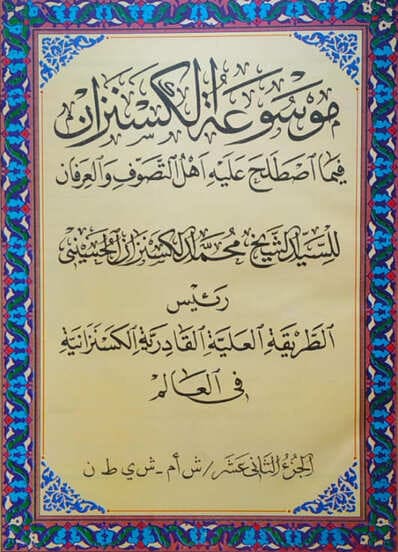 موسوعة الكسنزان
فيما اصطلح عليه أهل التصوف والعرفان
للسيد الشيخ محمد الكسنزان الحسيني
رئيس
الطريقة العلية القادرية الكسنزانية
في العالم
الجزء الثاني عشر / ش أ م - ش ي ط ن